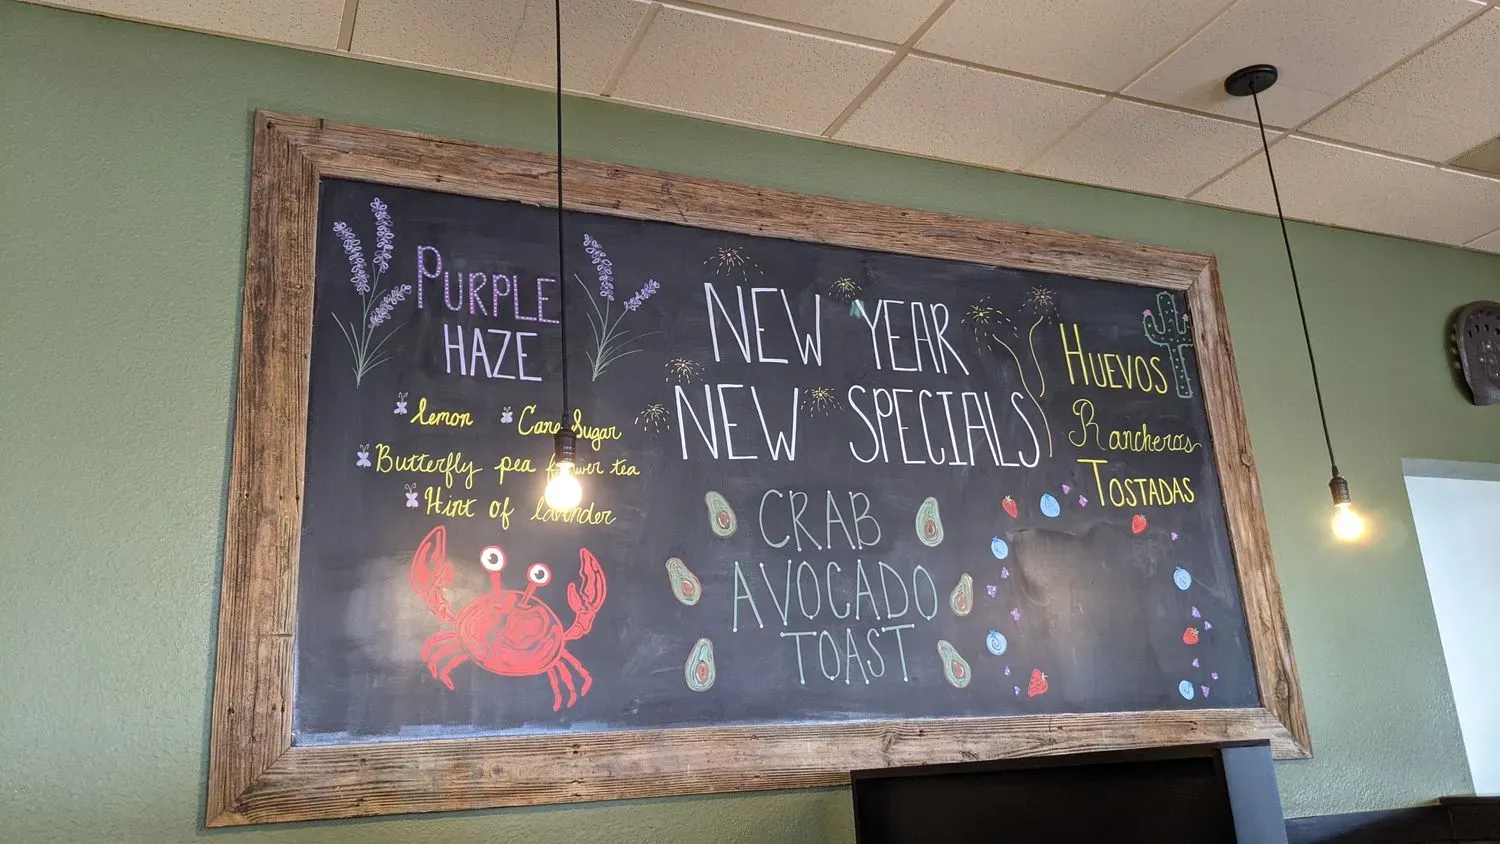 PURPLE
HAZE
lemon
Cane Sugar
Butterfly pea flower tea
Hint of lavender
NEW YEAR
NEW SPECIALS
CRAB
AVOCADO
TOAST
HUEVOS
Rancheros
TOSTADAS